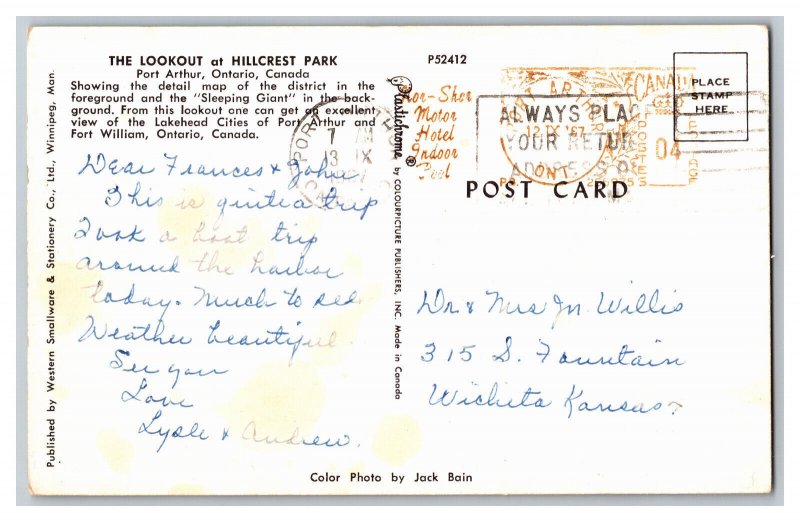 THE LOOKOUT at HILLCREST PARK
Port Arthur, Ontario, Canada
Showing the detail map of the district in the
foreground and the "Sleeping Giant" in the back-
ground. From this lookout one can get an excellent
view of the Lakehead Cities of Port Arthur and
Fort William, Ontario, Canada.
Dear Frances & John,
This is quite a trip
Took a boat trip
around the harbor
today. Much to see
Weather beautiful.
See you
Love
Lysle & Andrew.
Published by Western Smallware & Stationery Co., Ltd., Winnipeg, Man.
P52412
Plastichrome ® by COLOURPICTURE PUBLISHERS, INC. Made in Canada
PORT ARTHUR
7 PM
13 IX
Motor
Hotel
Indoor
Pool
PORT ARTHUR
12 IX '67
ONT.
CANADA
POSTES
POSTAGE
04
ALWAYS PLAC
YOUR RETUR
ADDRESS
PLACE
STAMP
HERE
POST CARD
Dr. & Mrs Jn. Willis
315 S. Fountain
Wichita Kansas
Color Photo by Jack Bain